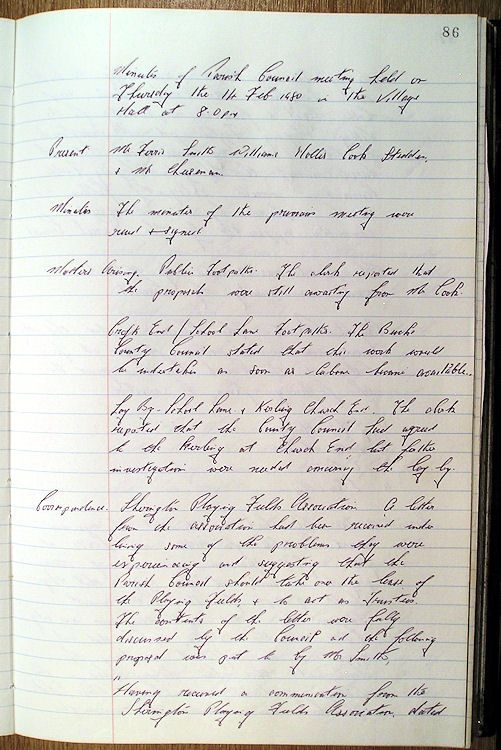 86
Minutes of Parish Council meeting held on
Thursday the 14 Feb 1980 in the Village
Hall at 8.0 pm
Present Mr Ferris Smith Williams Hollis Cook Stedden,
& Mr Chipman.
Minutes The minutes of the previous meeting were
read & signed
Matters Arising. Public Footpaths. The clerk reported that
the proposals were still awaiting from Mr Cook
Crofts End / School Lane Footpaths. The Bucks
County Council stated that this work would
be undertaken as soon as labour became available.
Lay By. School Lane & Kerbing Church End. The clerk
reported that the County Council had agreed
to the Kerbing at Church End, but further
investigation were needed concerning the lay by.
Correspondence. Sherington Playing Fields Association A letter
from the association had been received under
lining some of the problems they were
experiencing and suggesting that the
Parish Council should take over the lease of
the Playing Fields, & to act as Trustees.
The contents of the letter were fully
discussed by the Council and the following
proposal was put to by Mr Smith,
"
Having received a communication from the
Sherington Playing Fields Association, dated